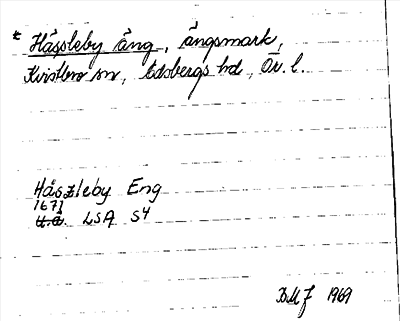 * Hässleby äng, ängsmark,
Kvistbro sn, Edsbergs hd, Ör. l.
Håszleby Eng
1671
u.å. LSA S4
BMJ 1969